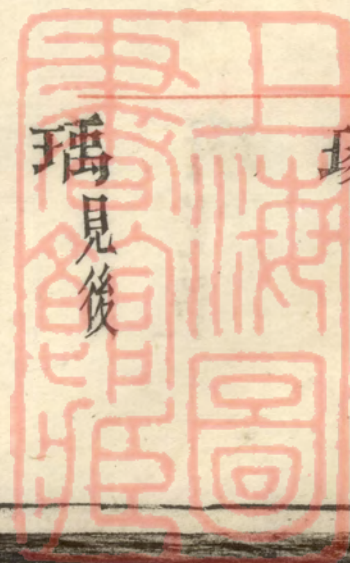 上海圖
書館藏
瑀見後